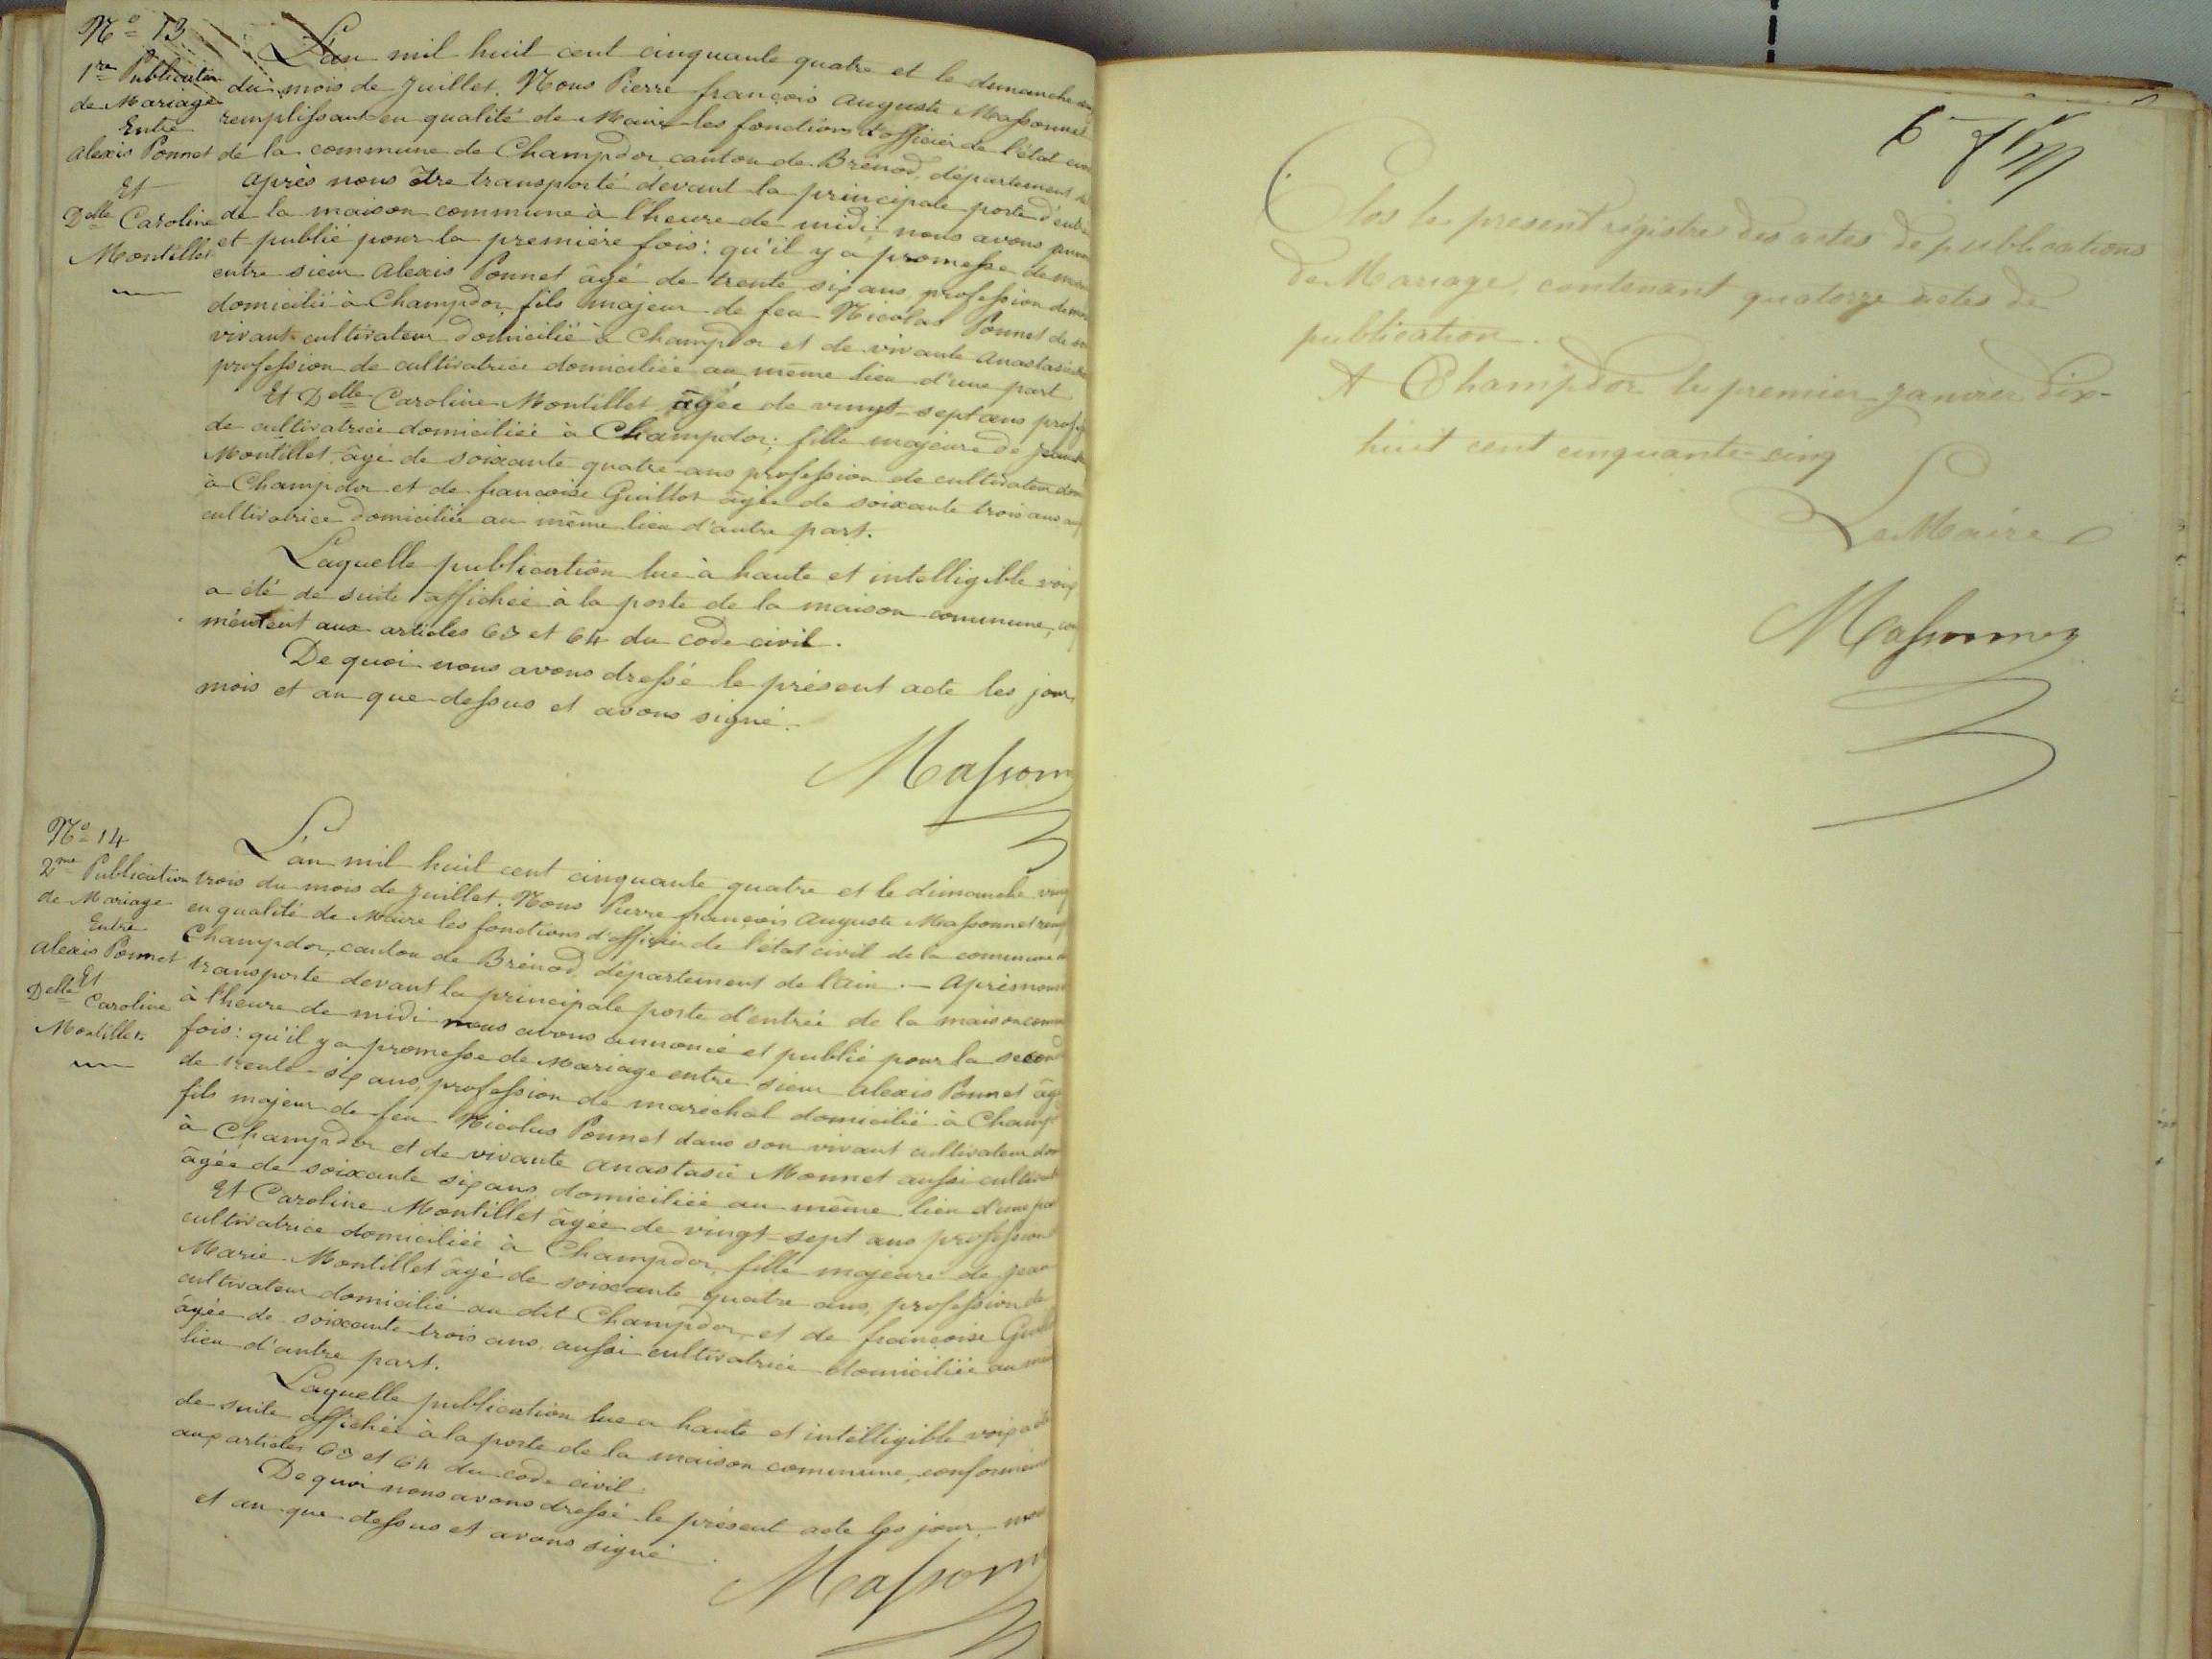 N° 13
1re Publication
de Mariage
Entre
alexis Ponnet
Et
Delle Caroline
Montillet
L'an mil huit cent cinquante quatre et le dimanche
du mois de Juillet. Nous Pierre françois auguste Massonnet
remplissant en qualité de Maire les fonctions d'officier de l'état
de la commune de Champdor canton de Brénod, département
après nous être transporté devant la principale porte
de la maison commune à l'heure de midi, nous avons
et publié pour la première fois: qu'il y a promesse de
entre sieur alexis Ponnet âgé de trente six ans, profession de
domicilié à Champdor, fils majeur de feu Nicolas Ponnet de
vivant cultivateur domicilié à Champdor et de vivante
profession de cultivatrice domiciliée au même lieu d'une part
Et Delle Caroline Montillet âgée de vingt-sept ans
de cultivatrice domiciliée à Champdor; fille majeure de
Montillet, âgé de soixante quatre ans profession de cultivateur
à Champdor et de francoise Guillot âgée de soixante trois ans
cultivatrice domiciliée au même lieu d'autre part.
Laquelle publication lue à haute et intelligible voix
a été de suite affichée à la porte de la maison commune,
mément aux articles 63 et 64 du code civil.
De quoi nous avons dressé le présent acte les jour,
mois et an que dessus et avons signé.
N° 14
2me Publication
de Mariage
Entre
alexis Ponnet
Et
Delle Caroline
Montillet.
L'an mil huit cent cinquante quatre et le dimanche
trois du mois de Juillet. Nous Pierre françois auguste Massonnet
en qualité de Maire les fonctions d'officier de l'état civil de la commune
Champdor, canton de Brénod, département de l'ain. — Après nous
transporte devant la principale porte d'entrée de la maison
à l'heure de midi nous avons annoncé et publié pour la
fois: qu'il y a promesse de Mariage entre sieur alexis Ponnet
de trente-six ans, profession de maréchal domicilié à
fils majeur de feu Nicolas Ponnet dans son vivant cultivateur
à Champdor et de vivante anastasie Monnet aussi
âgée de soixante six ans domiciliée au même lieu
Et Caroline Montillet âgée de vingt-sept ans profession
cultivatrice domiciliée à Champdor, fille majeure de
Marie Montillet âgé de soixante quatre ans, profession de
cultivateur domicilié au dit Champdor, et de françoise
âgée de soixante-trois ans aussi cultivatrice domiciliée au
lieu d'autre part.
Laquelle publication lue a haute et intelligible voix
de suite affichée à la porte de la maison commune,
aux articles 63 et 64 du code civil.
De quoi nous avons dressé le présent acte les jour,
et an que dessus et avons signé.
6
Clos le present régistre des actes de publications
de Mariage, contenant quatorze actes de
publication.
A Champdor le premier janvier dix-
huit cent cinquante-cinq
Le Maire
Massonnet